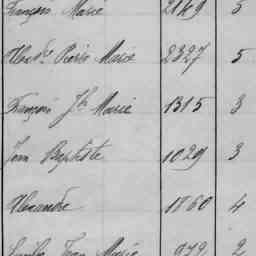 François Marie 2149 5
Alexdre Pierre Marie 2327 5
François Jh Marie 1315 3
Jean Baptiste 1029 3
Alexandre 1860 4
Jean Marie 979 2